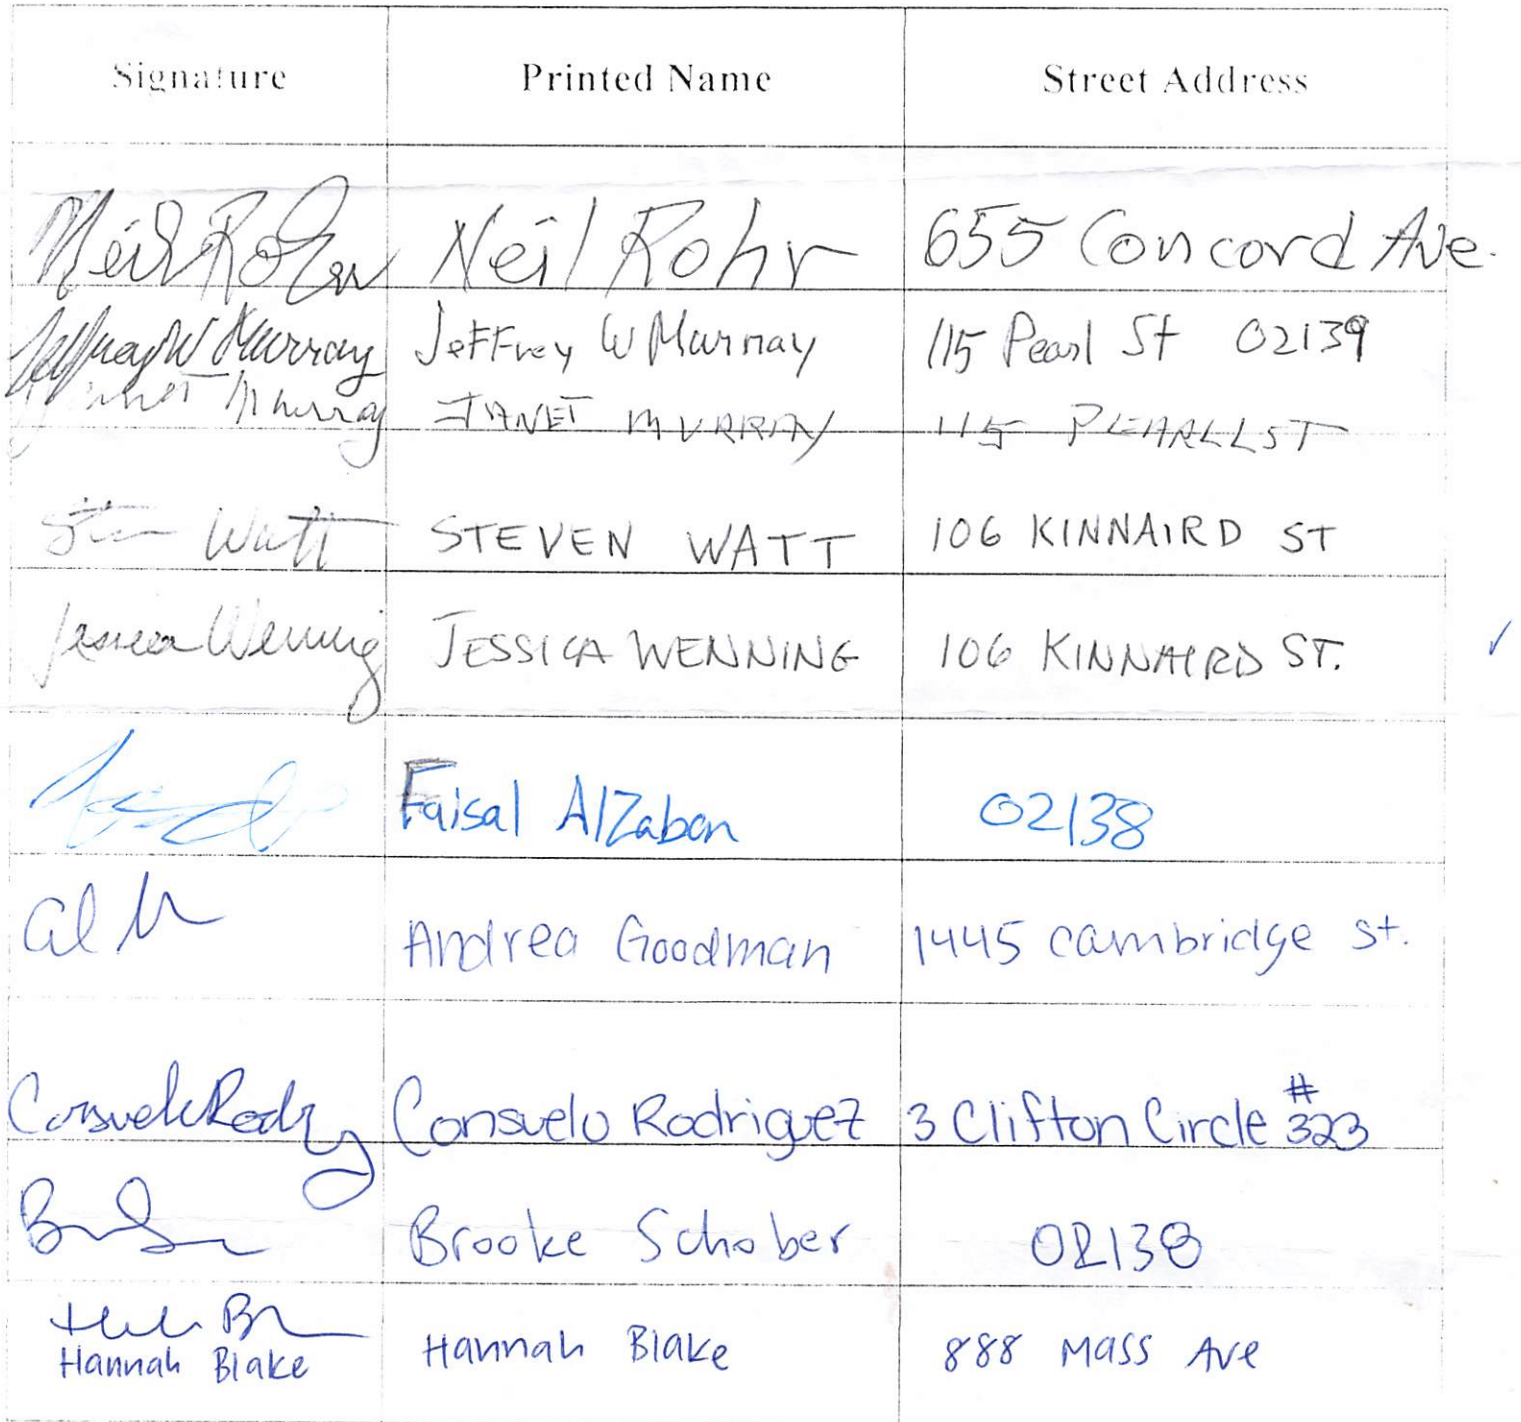 Signature Printed Name Street Address
Neil Rohr Neil Rohr 655 Concord Ave.
Jeffrey W Murray Jeffrey W Murray 115 Pearl St 02139
Janet Murray JANET MURRAY 115 PEARLL ST
Watt STEVEN WATT 106 KINNAIRD ST
Jessica Wenning JESSICA WENNING 106 KINNAIRD ST.
Faisal AlZaban 02138
Andrea Goodman 1445 cambridge st.
Consuelo Rodriguez 3 Clifton Circle #323
Brooke Schober 02138
Hannah Blake Hannah Blake 888 Mass Ave